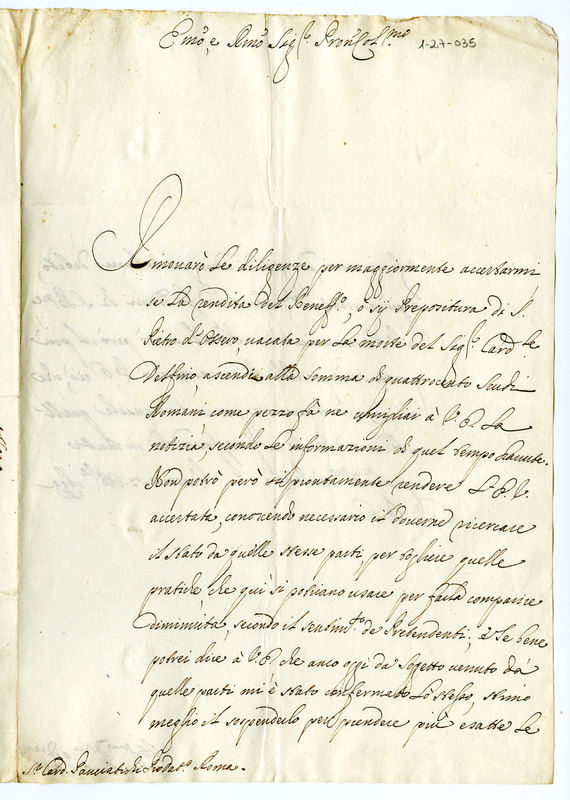 Emo, e Rmo Sigr. Pron Colmo.
1-27-035
Rinouarò le diligenze per maggiormente accertarmi
se la rendita del Beneffo., ò sij Prepositura di S.
Pietro d'Ossero, vacata per la morte del Sigr. Cardle.
Delfino, ascendi alla somma di quattrocento Scudi
Romani, come pezzo fà ne umiliai à V. E. la
notizia, secondo le informazioni di quel tempo hauute.
Non potrò però sì prontamente rendere l'E. V.
accertata, conoscendo necessario il douerne ricercare
il stato da quelle stesse parti, per togliere quelle
pratiche che quì si potriano usare per farla comparire
diminuita, secondo il sentimto. de Pretendenti; e se bene
potrei dire à V. E. che anco oggi da sogetto venuto da
quelle parti mi è stato confermato lo stesso, stimo
meglio il sospenderlo per prendere più esatte le
Sr. Card. Panciatichi Prodato. Roma.